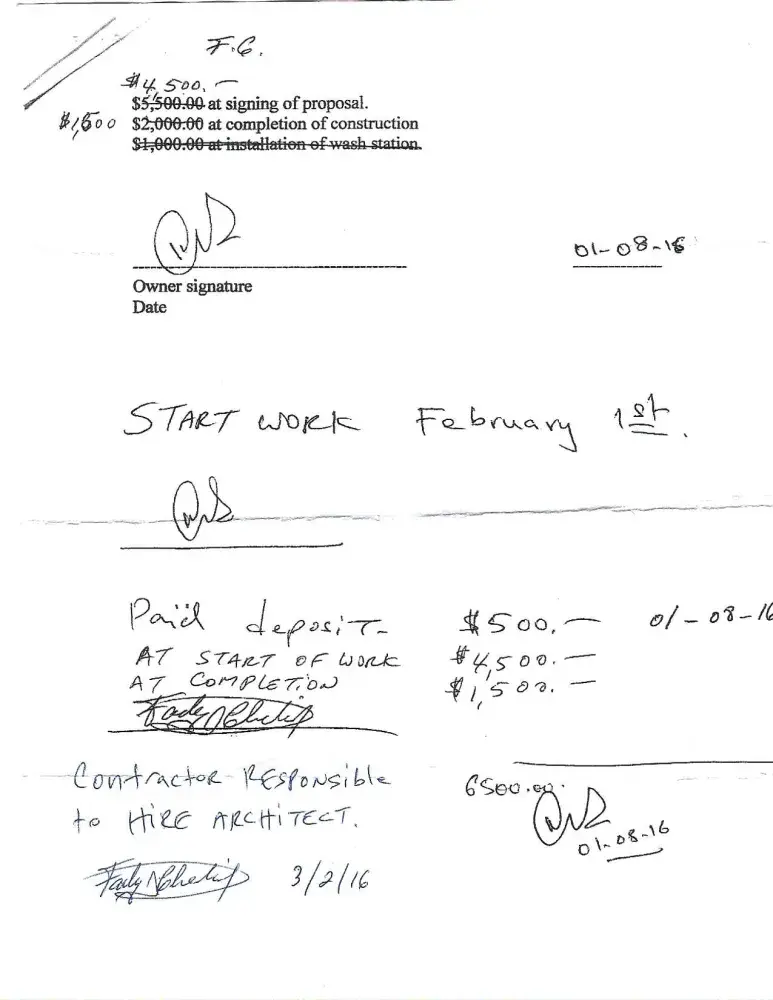 F.G.
$4,500.—
$5,500.00 at signing of proposal.
$1,500 $2,000.00 at completion of construction
$1,000.00 at installation of wash station.
01-08-16
Owner signature
Date
START WORK February 1st.
Paid deposit $500.— 01-08-16
AT START OF WORK $4,500.—
AT COMPLETION $1,500.—
Contractor Responsible 6500.00.
to HIRE ARCHITECT.
01-08-16
3/2/16